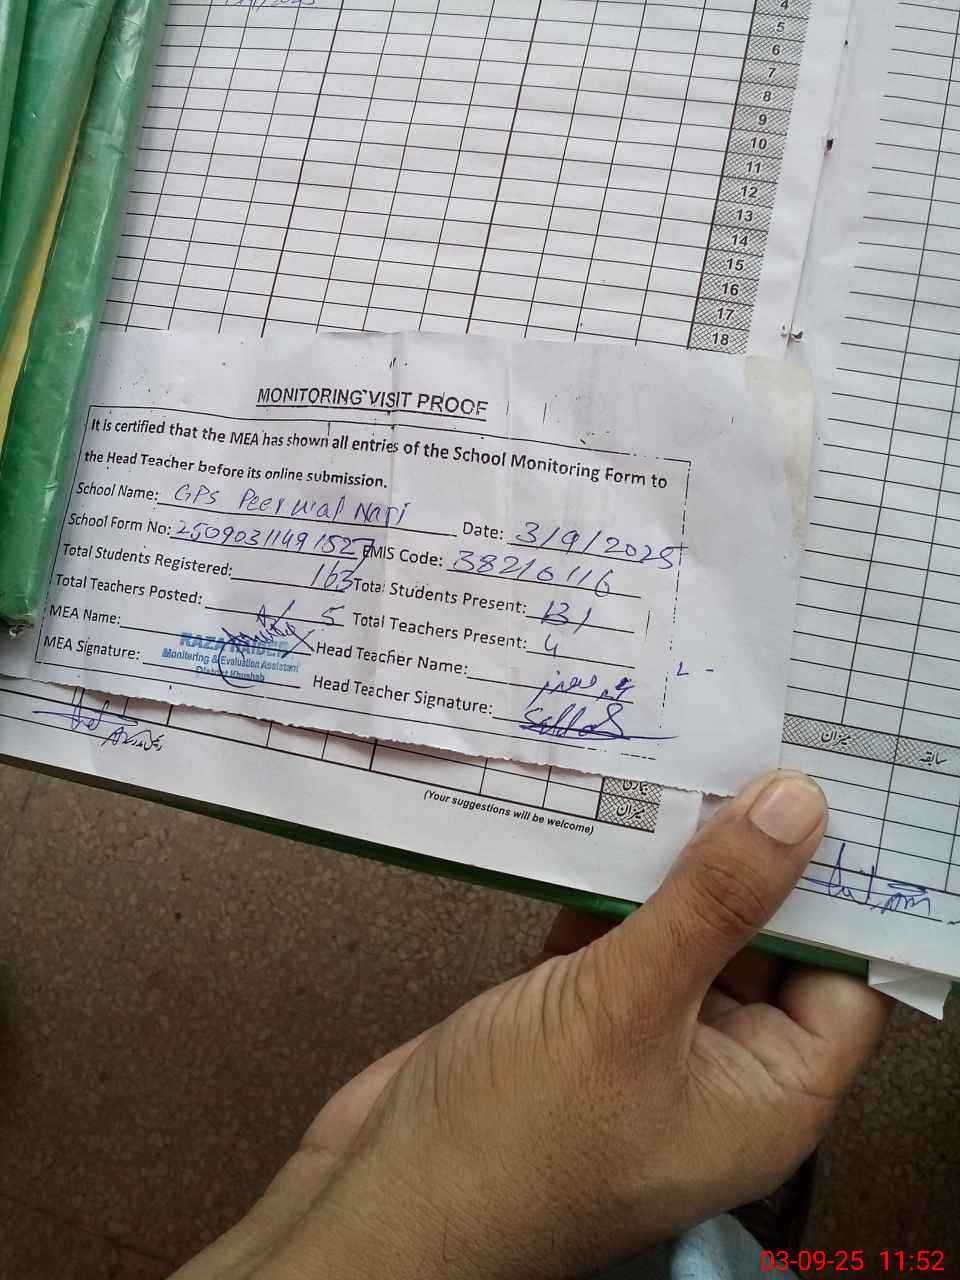 4
5
6
7
8
9
10
11
12
13
14
15
16
17
18
MONITORING VISIT PROOF
It is certified that the MEA has shown all entries of the School Monitoring Form to
the Head Teacher before its online submission.
School Name: GPS Peer Nari Date: 3/9/2025
School Form No: 2509031149 1527 EMIS Code: 38210116
Total Students Registered: 163 Total Students Present: 131
Total Teachers Posted: 5 Total Teachers Present: 4
MEA Name: RAZA HAIDER Head Teacher Name:
Monitoring & Evaluation Assistant
District Khushab
MEA Signature: Head Teacher Signature:
میزان
سابقہ
میزان
(Your suggestions will be welcome)
03-09-25 11:52